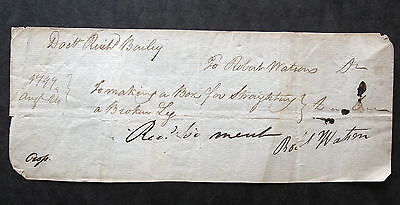 Doctr Richd Bailey
To Robert Watson Dr
1797 Augt 24 To making a Box for Straightning
a Broken Leg
Recd
Robt Watson